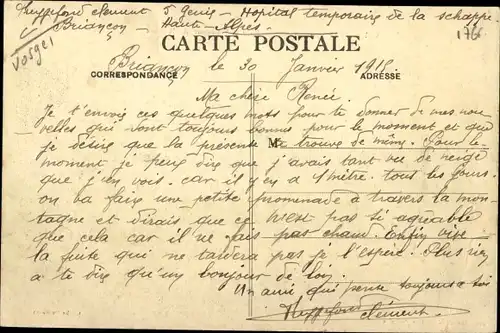 clement 5 Genie - Hopital temporaire de la schappe
Briançon - Hautes-Alpes -
176
Vosges
CARTE POSTALE
CORRESPONDANCE
ADRESSE
Briançon le 30 Janvier 1915
Ma chère Renée.
Je t'envois ces quelques mots pour te donner de mes nou-
velles qui sont toujours bonnes pour le moment et que
je désire que la présente te trouve de même. Pour le
M
moment je peux dire que j'avais tant vue de neige
que j'en vois. car il y en a 1 mètre. tous les jours.
on va faire une petite promenade à travers la mon-
tagne et dirais que ce n'est pas si agréable
que cela car il ne fais pas chaud. Enfin vive
la fuite qui ne tardera pas je l'espère. Plus rien
a te dire qu'un bonjour de loin.
Un ami qui pense toujours a toi
clément.